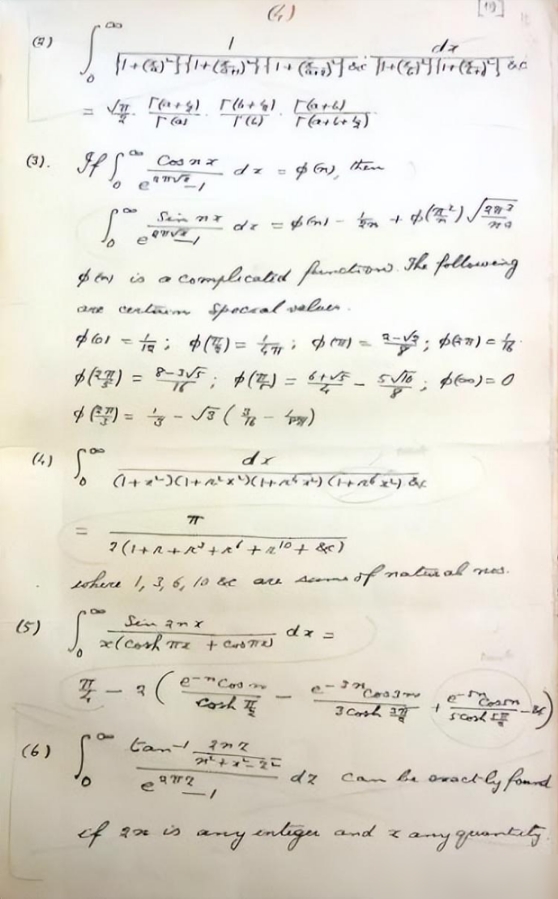 (4)
[19]
(2) ∫₀^∞ 1/({1+(x/a)²}{1+(x/(a+1))²}{1+(x/(a+2))²} &c) · dx/({1+(x/b)²}{1+(x/(b+1))²} &c)
= √π/2 · Γ(a+½)/Γ(a) · Γ(b+½)/Γ(b) · Γ(a+b)/Γ(a+b+½)
(3). If ∫₀^∞ Cos nx/(e^(2π√x)−1) dx = φ(n), then
∫₀^∞ Sin nx/(e^(2π√x)−1) dx = φ(n) − 1/2n + φ(π²/n) √(2π³/n³)
φ(n) is a complicated function. The following
are certain special values.
φ(0) = 1/12; φ(π/2) = 1/4π; φ(π) = (2−√2)/8; φ(2π) = 1/16
φ(2π/5) = (8−3√5)/16; φ(π/5) = (6+√5)/4 − 5√10/8; φ(∞) = 0
φ(2π/3) = 1/3 − √3(3/16 − 1/8π)
(4) ∫₀^∞ dx/((1+x²)(1+r²x²)(1+r⁴x²)(1+r⁶x²) &c)
= π/(2(1+r+r³+r⁶+r¹⁰+&c))
where 1, 3, 6, 10 &c are sums of natural nos.
(5) ∫₀^∞ Sin 2nx/(x(cosh πx + cos πx)) dx =
π/4 − 2(e^(−n) cos n/cosh π/2 − e^(−3n) cos 3n/3 cosh 3π/2 + e^(−5n) cos 5n/5 cosh 5π/2 − &c)
(6) ∫₀^∞ tan⁻¹ (2nz/(n²+x²−z²))/(e^(2πz)−1) dz can be exactly found
if 2n is any integer and x any quantity.